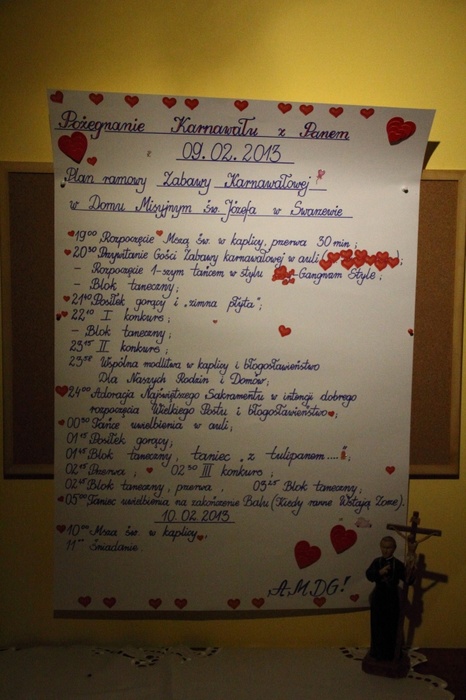 Pożegnanie Karnawału z Panem
09.02.2013
Plan ramowy Zabawy Karnawałowej
w Domu Misyjnym św. Józefa w Swarzewie
19⁰⁰ Rozpoczęcie Mszą św. w kaplicy, przerwa 30 min;
20³⁰ Przywitanie Gości Zabawy karnawałowej w auli
- Rozpoczęcie 1-szym tańcem w stylu Gangnam Style;
- Blok taneczny;
21⁴⁰ Posiłek gorący i „zimna płyta";
22¹⁰ I konkurs;
- Blok taneczny;
23¹⁵ II konkurs;
23³⁸ Wspólna modlitwa w kaplicy i błogosławieństwo
Dla Naszych Rodzin i Domów;
24⁰⁰ Adoracja Najświętszego Sakramentu w intencji dobrego
rozpoczęcia Wielkiego Postu i błogosławieństwo
00³⁰ Tańce uwielbienia w auli;
01¹⁵ Posiłek gorący;
01⁴⁵ Blok taneczny, taniec „z tulipanem....";
02¹⁵ Przerwa, 02³⁰ III konkurs;
02⁴⁵ Blok taneczny, przerwa, 03²⁵ Blok taneczny;
05⁰⁰ Taniec uwielbienia na zakończenie Balu (Kiedy ranne Wstają Zorze).
10.02.2013
10⁰⁰ Msza św. w kaplicy
11⁰⁰ Śniadanie
A.M.D.G!